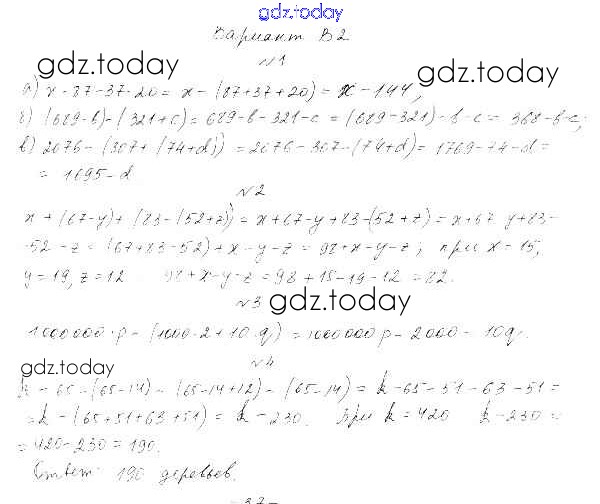 gdz.today
Вариант В2
gdz.today
№1
gdz.today
а) x - 87 - 37 - 20 = x - (87+37+20) = x - 144;
б) (689-b) - (321+c) = 689-b-321-c = (689-321)-b-c = 368-b-c;
в) 2076 - (307 + (74+d)) = 2076 - 307 - (74+d) = 1769-74-d =
= 1695-d
№2
x + (67-y) + (83-(52+z)) = x+67-y+83-(52+z) = x+67-y+83-
-52-z = (67+83-52)+x-y-z = 98+x-y-z; при x=15,
y=19, z=12 98+x-y-z = 98+15-19-12 = 82.
№3
gdz.today
1000000·p - (1000·2+10·q) = 1000000p - 2000 - 10q.
gdz.today
№4
k - 65 - (65-14) - (65-14+12) - (65-14) = k-65-51-63-51 =
= k - (65+51+63+51) = k - 230. При k = 420 k-230 =
= 420-230 = 190.
Ответ: 190 деревьев.